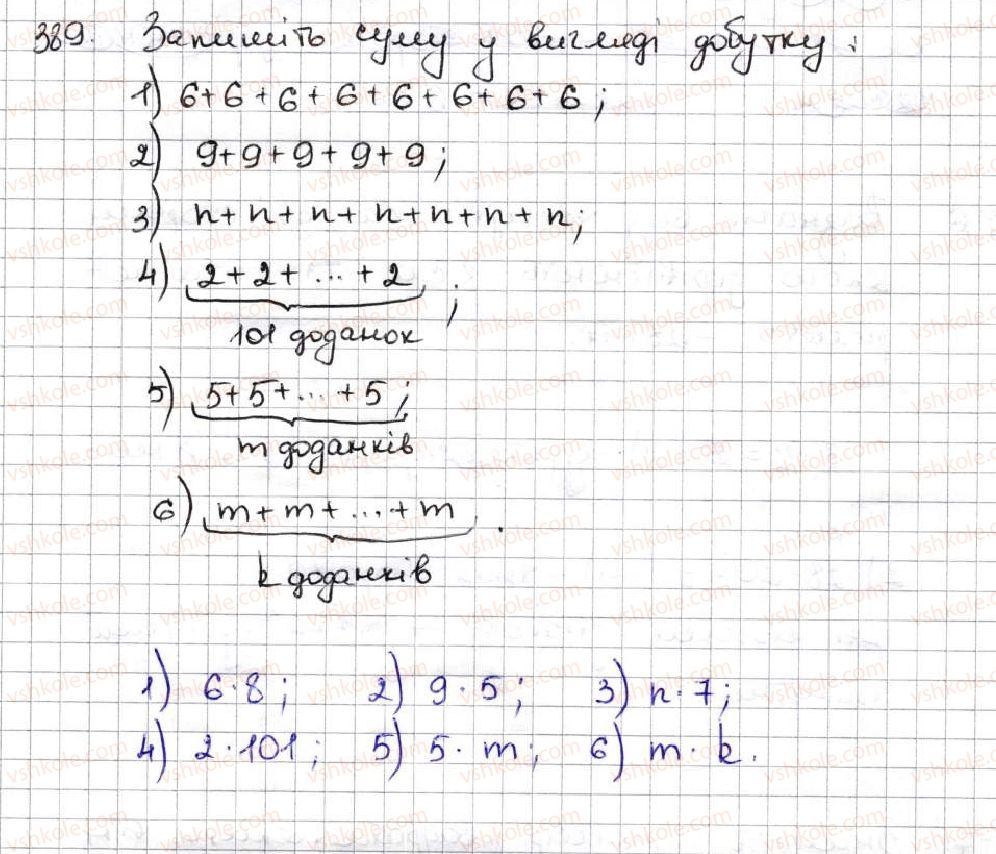 389. Запишіть суму у вигляді добутку:
1) 6+6+6+6+6+6+6+6;
2) 9+9+9+9+9;
3) n+n+n+n+n+n+n;
4) 2+2+...+2;
101 доданок
5) 5+5+...+5;
m доданків
6) m+m+...+m.
k доданків
1) 6·8; 2) 9·5; 3) n·7;
4) 2·101; 5) 5·m; 6) m·k.